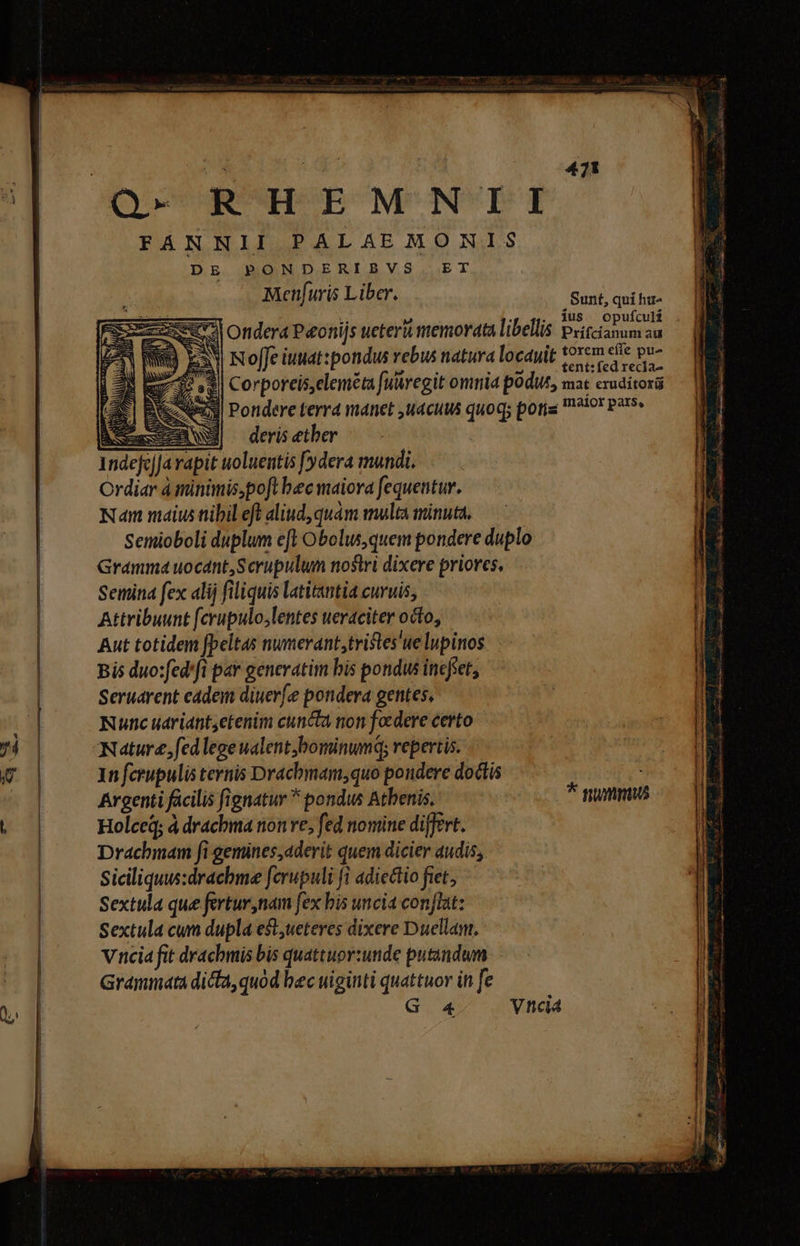 471
Q. RHEMNII
FANNII PALAEMONIS
DE PONDERIBVS ET
Menſuris Liber.
Sunt, qui hu-
ius opuſculi
Priſcianum au
torem eſſe pu-
tent: ſed recla-
mat eruditorū
maior pars.
Ondera Pæonijs ueterū memorata libellis
Noſſe iuuat: pondus rebus natura locauit
Corporeis, elemēta ſuū regit omnia pōdus,
Pondere terra manet, uacuus quoq; pon=
deris æther
Indefeſſa rapit uoluentis ſydera mundi.
Ordiar à minimis, poſt hæc maiora ſequentur.
Nam maius nihil eſt aliud, quàm multa minuta.
Semioboli duplum eſt Obolus, quem pondere duplo
Gramma uocant, Scrupulum noſtri dixere priores.
Semina ſex alij ſiliquis latitantia curuis,
Attribuunt ſcrupulo, lentes ueraciter octo,
Aut totidem ſpeltas numerant, triſtes'ue lupinos
Bis duo: ſed ſi par generatim his pondus ineſſet,
Seruarent eadem diuerſæ pondera gentes.
Nunc uariant, etenim cuncta non fœdere certo
Naturæ, ſed lege ualent, hominumq́; repertis.
In ſcrupulis ternis Drachmam, quo pondere doctis
Argenti facilis ſignatur * pondus Athenis.
* nummus
Holceq́; à drachma non re, ſed nomine differt.
Drachmam ſi gemines, aderit quem dicier audis,
Siciliquus: drachmæ ſcrupuli ſi adiectio fiet,
Sextula quæ fertur, nam ſex his uncia conſtat:
Sextula cum dupla eſt, ueteres dixere Duellam.
Vncia fit drachmis bis quattuor: unde putandum
Grammata dicta, quòd hæc uiginti quattuor in ſe
G 4
Vncia